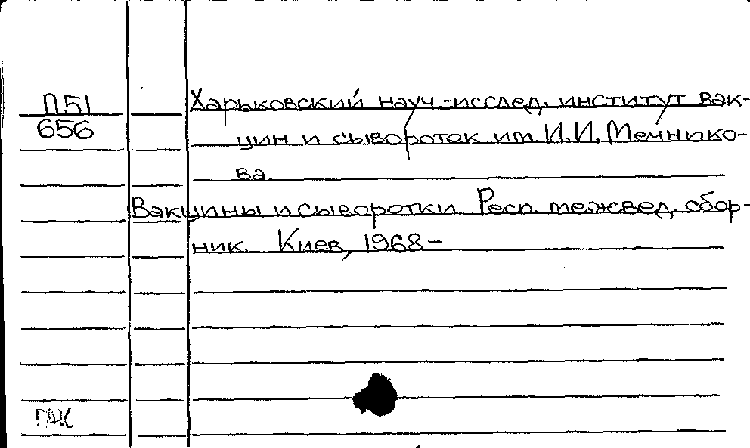 П51
656
Харьковский науч.-исслед. институт вак-
цин и сывороток им. И.И. Мечнико-
ва.
Вакцины и сыворотки. Респ. межвед. сбор-
ник. Киев, 1968-